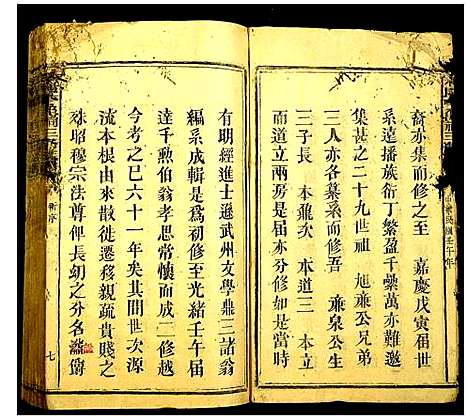 裔亦集而修之至　嘉慶戊寅届世
系遠播族衍丁繁盈千纍萬亦難遍
集甚之二十九世祖　旭兼公兄弟
三人亦各纂系而修吾　兼泉公生
三子長　本鼐次　本道三　本立
本立迁立兩房是届三修
有明經進士遜武州文學鼎三諸翁
編系成輯是爲初修至光緒壬午届
達千勲伯翁孝思常懐而成二修越
今考之已六十一年矣其間世次源
流本根由來散徙遷移親疏貴賤之
殊昭穆宗法尊俾長幼之分名諱
新序
七